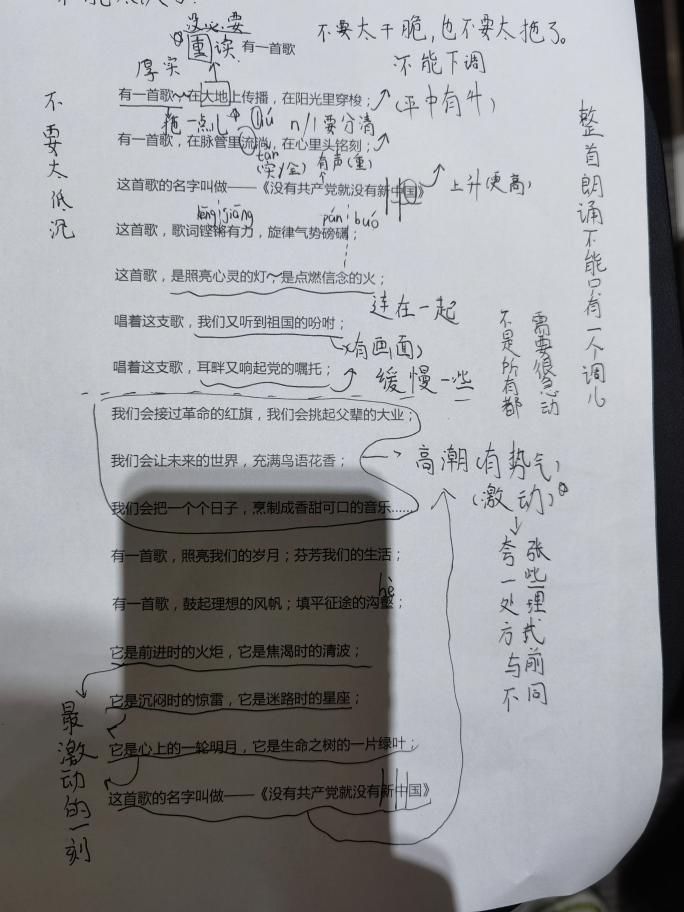 没必要
重读
有一首歌
不要太干脆,也不要太拖了。
不能下调
厚实
有一首歌,在大地上传播,在阳光里穿梭;
(平中有升)
拖一点儿
n/l要分清
有一首歌,在脉管里流淌,在心里头铭刻;
tǎng
(实/全)
有声(重)
这首歌的名字叫做——《没有共产党就没有新中国》
上升(更高)
kēng jiāng
páng bó
这首歌,歌词铿锵有力,旋律气势磅礴;
这首歌,是照亮心灵的灯,是点燃信念的火;
连在一起
唱着这支歌,我们又听到祖国的吩咐;
(有画面)
唱着这支歌,耳畔又响起党的嘱托;
缓慢一些
我们会接过革命的红旗,我们会挑起父辈的大业;
我们会让未来的世界,充满鸟语花香;
高潮(有势气)
(激动)
我们会把一个个日子,烹制成香甜可口的音乐……
有一首歌,照亮我们的岁月;芬芳我们的生活;
hè
有一首歌,鼓起理想的风帆;填平征途的沟壑;
它是前进时的火炬,它是焦渴时的清波;
它是沉闷时的惊雷,它是迷路时的星座;
它是心上的一轮明月,它是生命之树的一片绿叶;
这首歌的名字叫做——《没有共产党就没有新中国》
不要太低沉
整首朗诵不能只有一个调儿
需要很急动
不是所有都
夸张一些处理方式与前不同
最激动的一刻